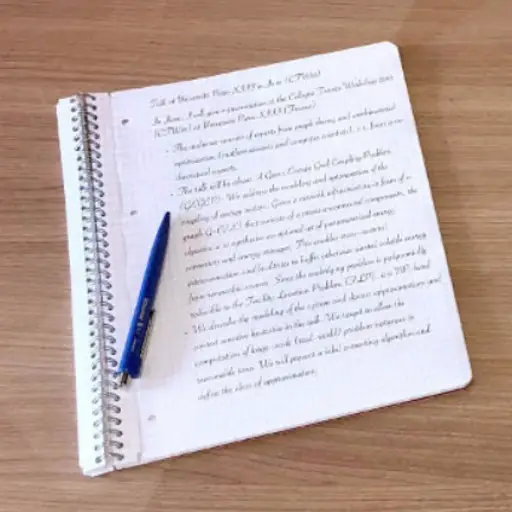 Talk at Université Paris XIII in June (CTW16)
In June, I will give a presentation at the Cologne Twente Workshop 2016
(CTW16) at Université Paris XIII (France)
• The audience consists of experts from graph theory and combinatorial
optimization (mathematicians and computer scientists), i.e., from
theoretical experts.
• The talk will be about A Green Energy Grid Coupling Problem
We address the modeling and optimization of the
coupling of energy Given a network infrastructure in form of a
graph G=(V,E) that consists of components, the
objective is to synthesize an optimal set of parameterized energy
connectors and energy storages. This enables
interconnection and facilities to buffer volatile energy
from renewable sources. Since the underlying problem is polynomially
reducible to the Facility Location Problem (FLP), it is NP-hard
• We describe the modeling of the system and discuss approximations and
context sensitive heuristics in the talk. We target to allow the
computation of large-scale (real-world) problem instances in
reasonable time. We will present a label correcting algorithm and
define the class of approximations.